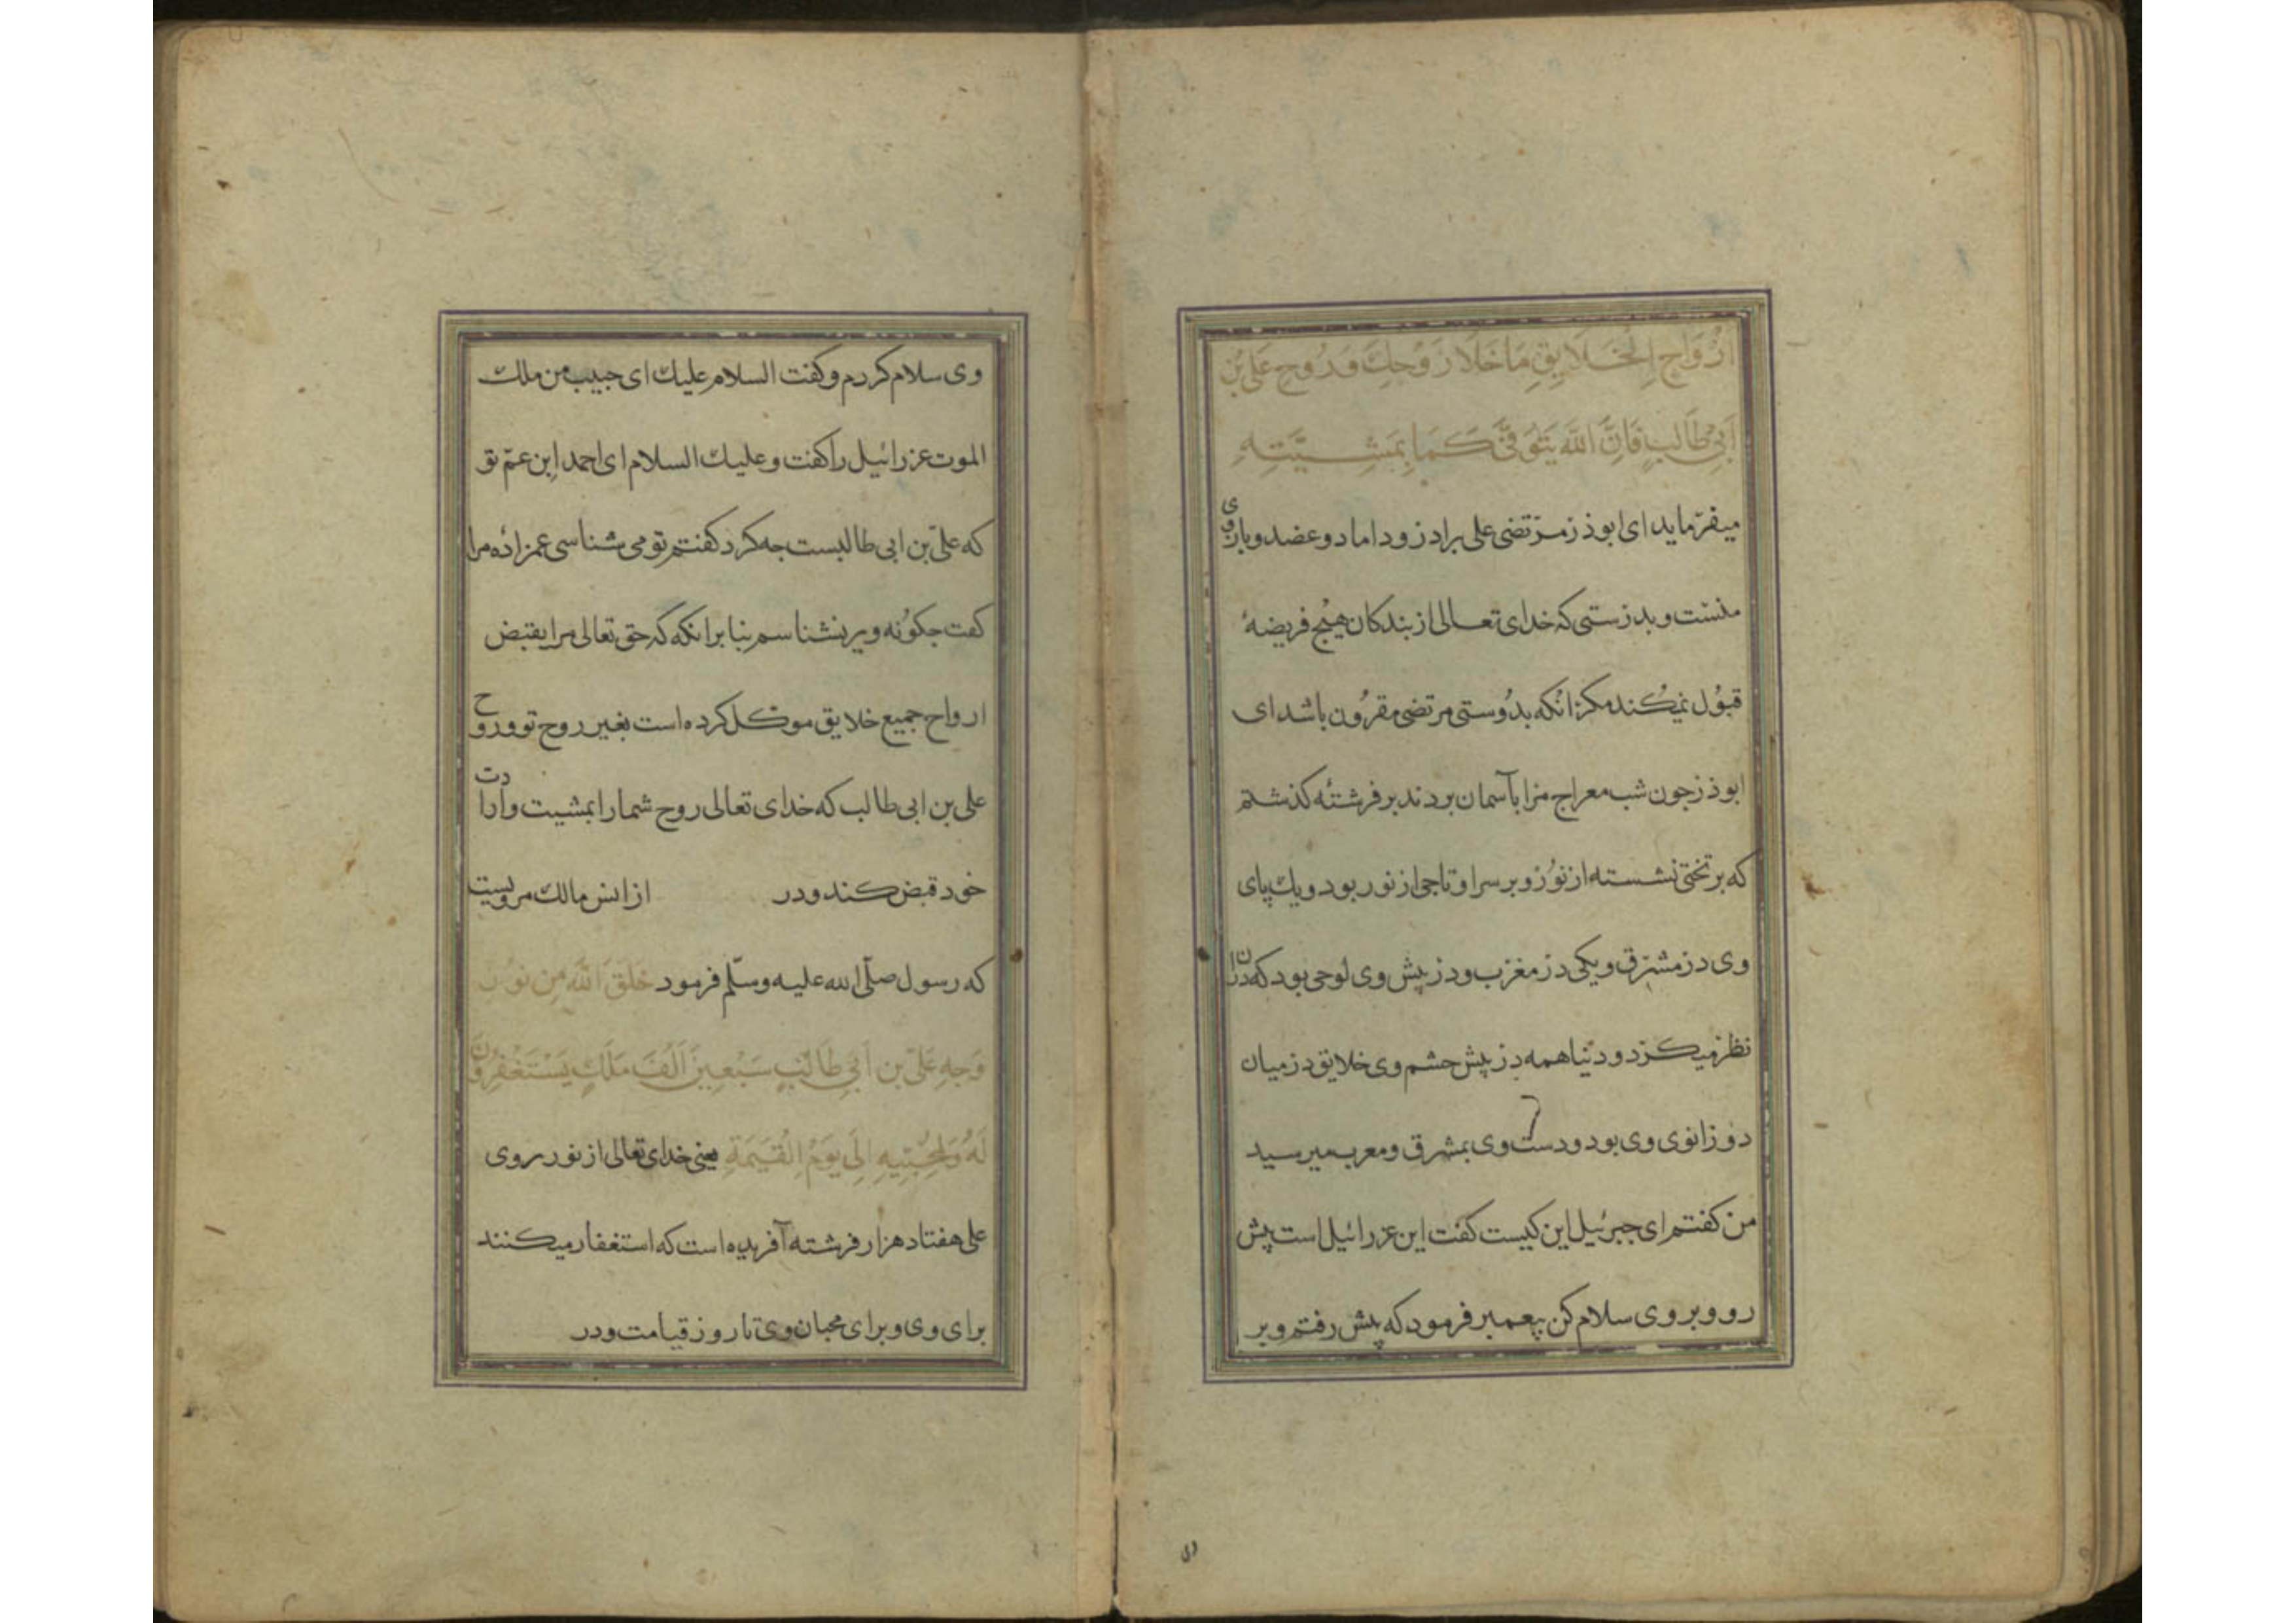 اَرْوَاحِ الْخَلَایِقِ مَا خَلَا رَوْحِكَ وَرُوحِ عَلِیِّ بْنِ
اَبِیْ طَالِبٍ فَاِنَّ اللّٰهَ یَتَوَفَّیٰ كَمَا بِمَشِیَّتِهِ
میفرماید ای ابوذر مرتضی علی برادر و داماد و عضد و بازوی
منست و بدرستی که خدای تعالی از بندکان هیچ فریضهٔ
قبول نمیکند مکر انکه بدوستی مرتضی مقرون باشد ای
ابوذر جون شب معراج مرا بآسمان بردند بر فرشتهٔ کذشتم
که بر تختی نشسته از نور و بر سر او تاجی از نور بود و یك پای
وی در مشرق و یکی در مغرب و در پیش وی لوحی بود که دران
نظر میکرد و دنیا همه در پیش جشم وی خلایق در میان
دو زانوی وی بود و دست وی بمشرق ومعرب میرسید
من کفتم ای جبرئیل این کیست کفت این عزرائیل است پیش
رو و بر وی سلام کن پیعمبر فرمود که پیش رفتم و بر
وی سلام کردم و کفت السلام علیك ای حبیب من ملك
الموت عزرائیل را کفت و علیك السلام ای احمد ابن عمّ تو
که علیّ بن ابی طالبست جه کرد کفتم تو می شناسی عمزادهٔ مرا
کفت جکونه ویرا نشناسم بنابر انکه که حق تعالی مرا بقبض
ارواح جمیع خلایق موکل کرده است بغیر روح تو و روح
علی بن ابی طالب که خدای تعالی روح شما را بمشیت وارادت
خود قبض کند و در از انس مالك مرویست
که رسول صلّی الله علیه وسلّم فرمود خَلَقَ اللّٰهُ مِن نُوْرِ
وَجهِ عَلِیّ بن اَبِیْ طَالِبٍ سَبْعِیْنَ اَلْفَ مَلَكٍ یَسْتَغْفِرُوْنَ
لَهُ وَلِمُحِبِّیْهِ اِلَی یَوْمِ الْقِیٰمَةِ یعنی خدای تعالی از نور روی
علی هفتاد هزار فرشته آفریده است که استغفار میکنند
برای وی و برای محبان وی تا روز قیامت و در